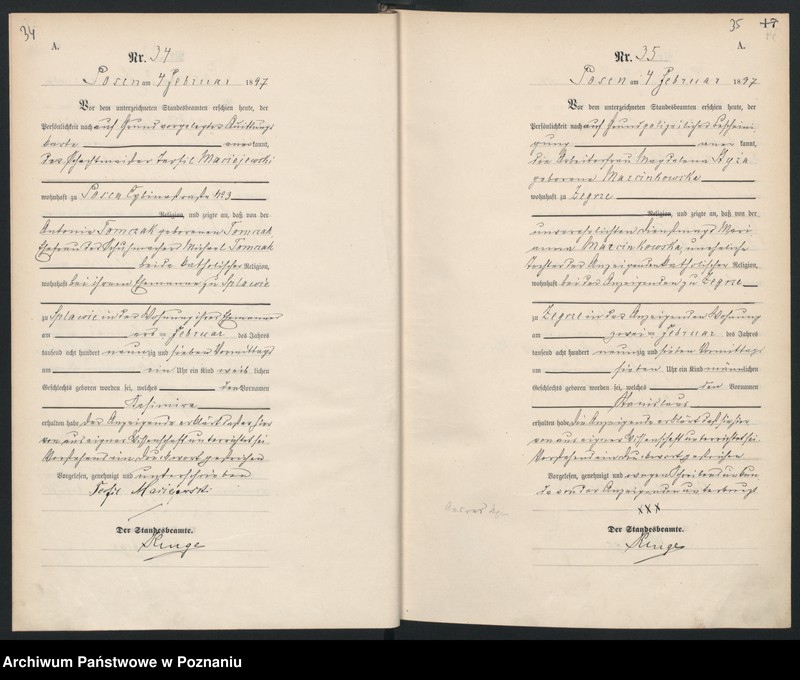 34
A.
Nr. 34
Posen am 4 Februar 1897
Vor dem unterzeichneten Standesbeamten erschien heute, der
Persönlichkeit nach auf Grund vorgelegter Quittungs
karte anerkannt,
der Schachtmeister Teofil Maciejewski
wohnhaft zu Posen
Religion, und zeigte an, daß von der
Antonie Tomczak geborenen Tomczak
Ehefrau des Michael Tomczak
beide katholischer Religion,
wohnhaft bei ihrem Ehemanne zu Splawie
zu Splawie in der Wohnung ihres Ehemannes
am ersten Februar des Jahres
tausend acht hundert neunzig und sieben Vormittags
am ein Uhr ein Kind weiblichen
Geschlechts geboren worden sei, welches den Vornamen
Kasimira
erhalten habe. Der Anzeigende erklärt daß er hier
von aus eigner Wissenschaft unterrichtet sei
Vorstehend ein Druckwort gestrichen
Vorgelesen, genehmigt und unterschrieben
Teofil Maciejewski
Der Standesbeamte.
Runge
35
17
A.
Nr. 35
Posen am 4 Februar 1897
Vor dem unterzeichneten Standesbeamten erschien heute, der
Persönlichkeit nach auf Grund polizeilicher Bescheini
gung anerkannt,
die Arbeiterfrau Magdalena
geborene Marcinkowska
wohnhaft zu Zegrze
Religion, und zeigte an, daß von der
unverehelichten Dienstmagd Mari
anna Marcinkowska, uneheliche
Tochter der Anzeigenden katholischer Religion,
wohnhaft bei der Anzeigenden zu Zegrze
zu Zegrze in der Anzeigenden Wohnung
am zweiten Februar des Jahres
tausend acht hundert neunzig und sieben Vormittags
am sieben Uhr ein Kind männlichen
Geschlechts geboren worden sei, welches den Vornamen
Stanislaus
erhalten habe. Die Anzeigende erklärt daß sie hier
von aus eigner Wissenschaft unterrichtet sei.
Vorstehend ein Druckwort gestrichen
Vorgelesen, genehmigt und wegen Schreibensunkun
de von der Anzeigenden unterkreuzt
XXX
Der Standesbeamte.
Runge
Archiwum Państwowe w Poznaniu